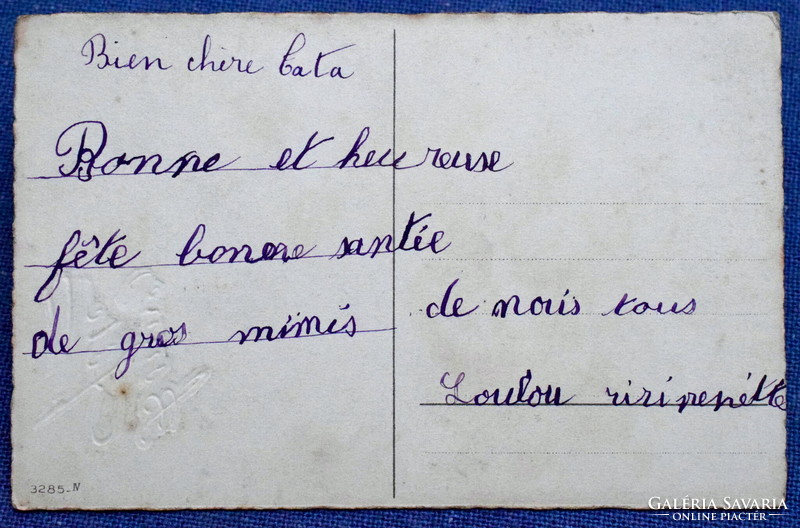 Bien chère Cata
Bonne et heureuse
fête bonne santée
de gros mimis
de nous tous
Loulou riri nenétte
3285-IV
GALÉRIA SAVARIA
ONLINE PIACTÉR